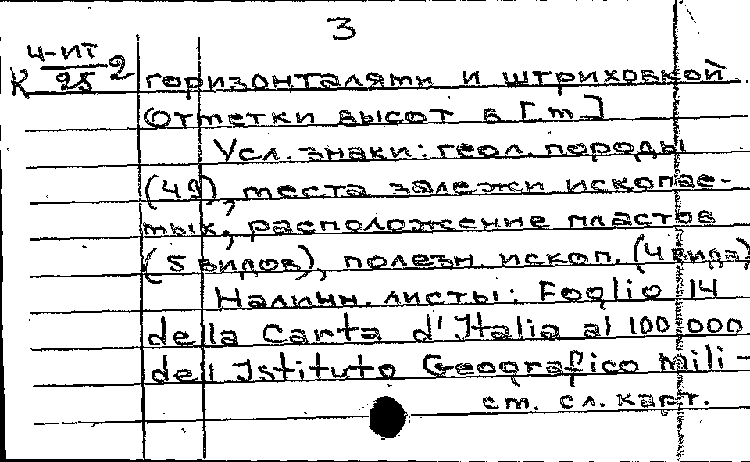 3
К 4-ИТ/25 2
горизонталями и штриховкой.
Отметки высот в [m]
Усл. знаки: геол. породы
(49), места залежи ископае-
мых, расположение пластов
(5 видов), полезн. ископ. (4 вида)
Налич. листы: Foglio 14
della Carta d'Italia al 100 000
dell Istituto Geografico Mili-
см. сл. карт.